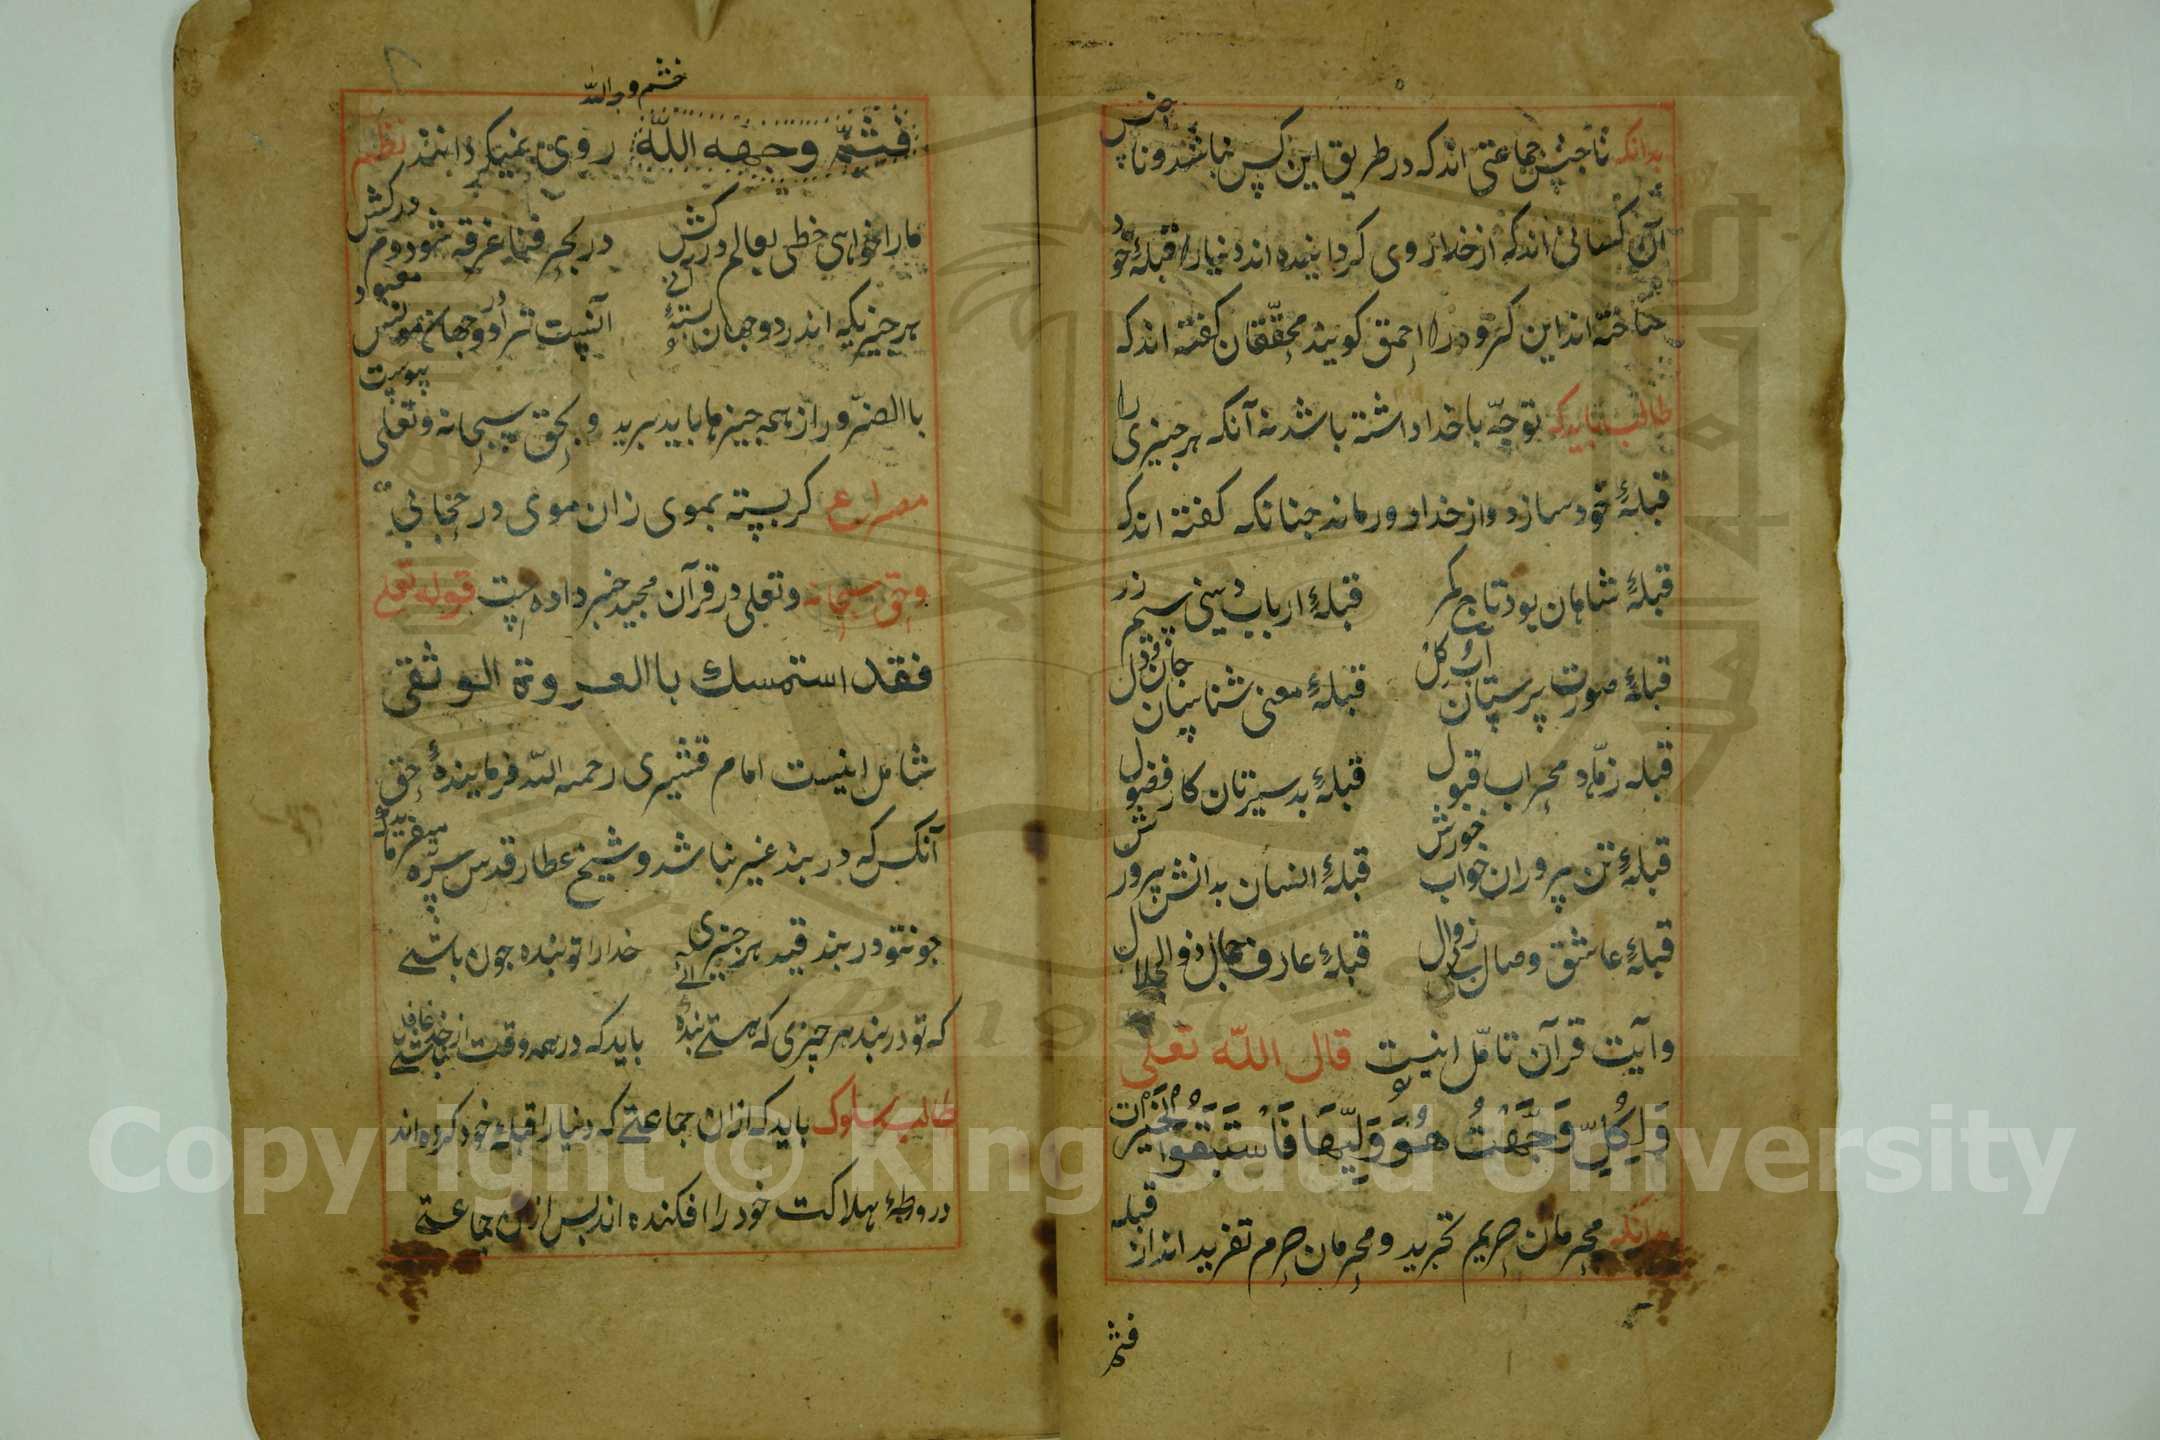 بدانکه ناجنس جماعتی اند که در طریق این کس نباشد و ناجنس
آن کسانی اند که از خدا روی کردانیده اند دنیا را قبلهٔ خود
ساخته اند این کروه را احمق کویند محققان کفته اند که
طالب باید که توجّه با خدا داشته باشد نه آنکه هر جیزی را
قبلهٔ خود سازد و از خدا دور ماند جنانکه کفته اند که
قبلهٔ شاهان بود تاج کمر قبلهٔ ارباب دنیی سیم زر
قبلهٔ صورت پرستان آب کل قبلهٔ معنی شناسان جان و دل
قبله زهّاد محراب قبول قبلهٔ بدسیرتان کار فضول
قبلهٔ تن پروران خواب خورش قبلهٔ انسان بدانش پرورش
قبلهٔ عاشق وصال بی زوال قبلهٔ عارف جمال ذو الجلال
و آیت قرآن تامّل اینست قال اللّه تعلی
وَلِكُلٍّ وَجَّهَتُ هُوَ وَلِّيهَا فَاسْتَبَقُوا الخَيْرَات
بدانکه محرمان حریم تجرید و محرمان حرم تفرید انداز قبله
فثم
فثم وجه اللّه
فثمّ وجهه اللّه روی نمیکردانند نظم
ما را خواهی خطی بعالم درکش در بحر فنا غرقه شو دوم درکش
هر جیزیکه اندر دو جهان بستهٔ آنی آنست ترا در دو جهان مونس معبود
باالضرور از همه جیزها باید برید و بحق سبحانه و تعلی پیوست
مصراع کر بسته بموی زان موی در حجابی
وحق سبحانه و تعلی در قرآن مجید خبر داده است قوله تعلی
فقد استمسك باالعروة الوثقى
شامل اینست امام قشیری رحمه اللّه فرماینده حق
آنکس که در بند غیر نباشد و شیخ عطار قدس سره میفرماید
جو تو در بند قید هر جیزی خدا را تو بنده جون باشے
که تو در بند هر جیزی که هستے بندهٔ باید که در همه وقت از خدا غافل نباشے
طالب سلوک باید که از ان جماعتے که دنیا را قبلهٔ خود کرده اند
در ورطهٔ هلاکت خود را افکنده اند بس از ان جماعتے
Copyright © King Saud University